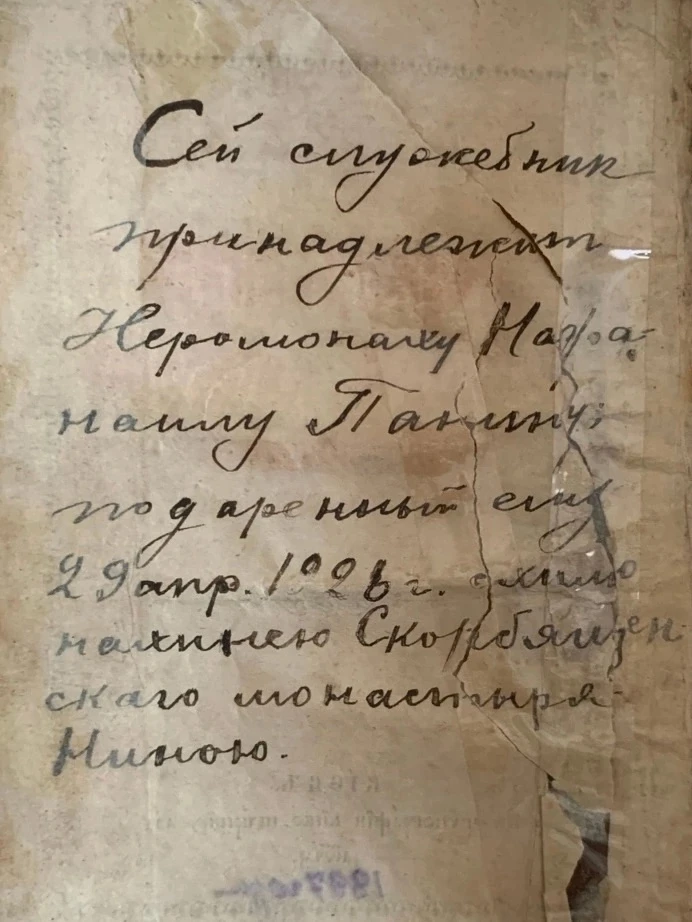 Сей служебник
принадлежит
Иеромонаху Нафа-
наилу Панину;
подаренный ему
29 апр. 1926 г. схимо
нахинею Скорбящен
скаго монастыря
Ниною.